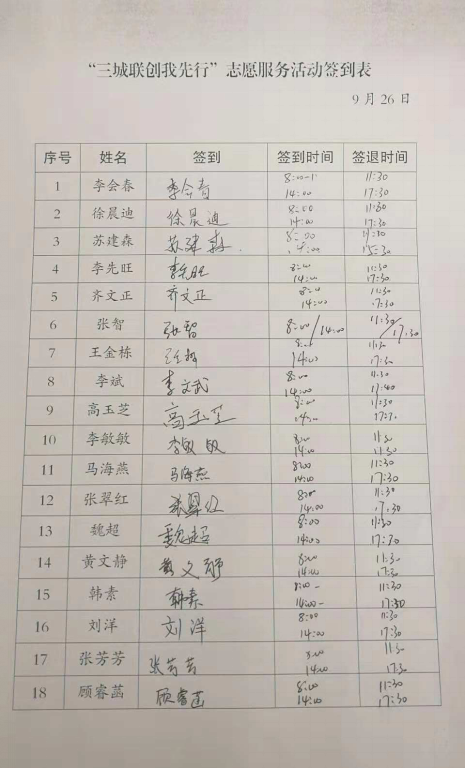 “三城联创我先行”志愿服务活动签到表
9月26日
序号 姓名 签到 签到时间 签退时间
1 李会春 李会春 8:00 11:30
14:00 17:30
2 徐晨迪 徐晨迪 8:00 11:30
14:00 17:30
3 苏建森 苏建森 8:00 11:30
14:00 15:30
4 李先旺 李先旺 8:00 11:30
14:00 17:30
5 齐文正 齐文正 8:00 11:30
14:00 17:30
6 张智 张智 8:00/14:00 11:30/17:30
7 王金栋 8:00 11:30
14:00 17:30
8 李斌 李文武 8:00 11:30
14:00 17:40
9 高玉芝 高玉芝 8:00 11:30
14:00
10 李敏敏 李敏敏 8:00 11:30
14:00 11:30
11 马海燕 马海燕 8:00 11:30
14:00 17:30
12 张翠红 张翠红 8:00 11:30
14:00 17:30
13 魏超 魏超 8:00 11:30
14:00 17:30
14 黄文静 黄文静 8:00 11:30
14:00 17:30
15 韩素 韩素 8:00- 11:30
14:00- 17:30
16 刘洋 刘洋 8:00 11:30
14:00 17:30
17 张芳芳 张芳芳 8:00 11:30
14:00 17:30
18 顾睿菡 顾睿菡 8:00 11:30
14:00 17:30